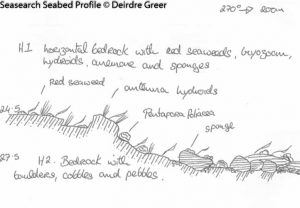 Seasearch Seabed Profile © Deirdre Greer
270° → 200m
H.1 horizontal bedrock with red seaweeds, bryozoan,
hydroids, anemone and sponges
red seaweed
antenna hydroids
Pentapora foliacea
sponge
24.5
27.5
H2. Bedrock with
boulders, cobbles and pebbles.